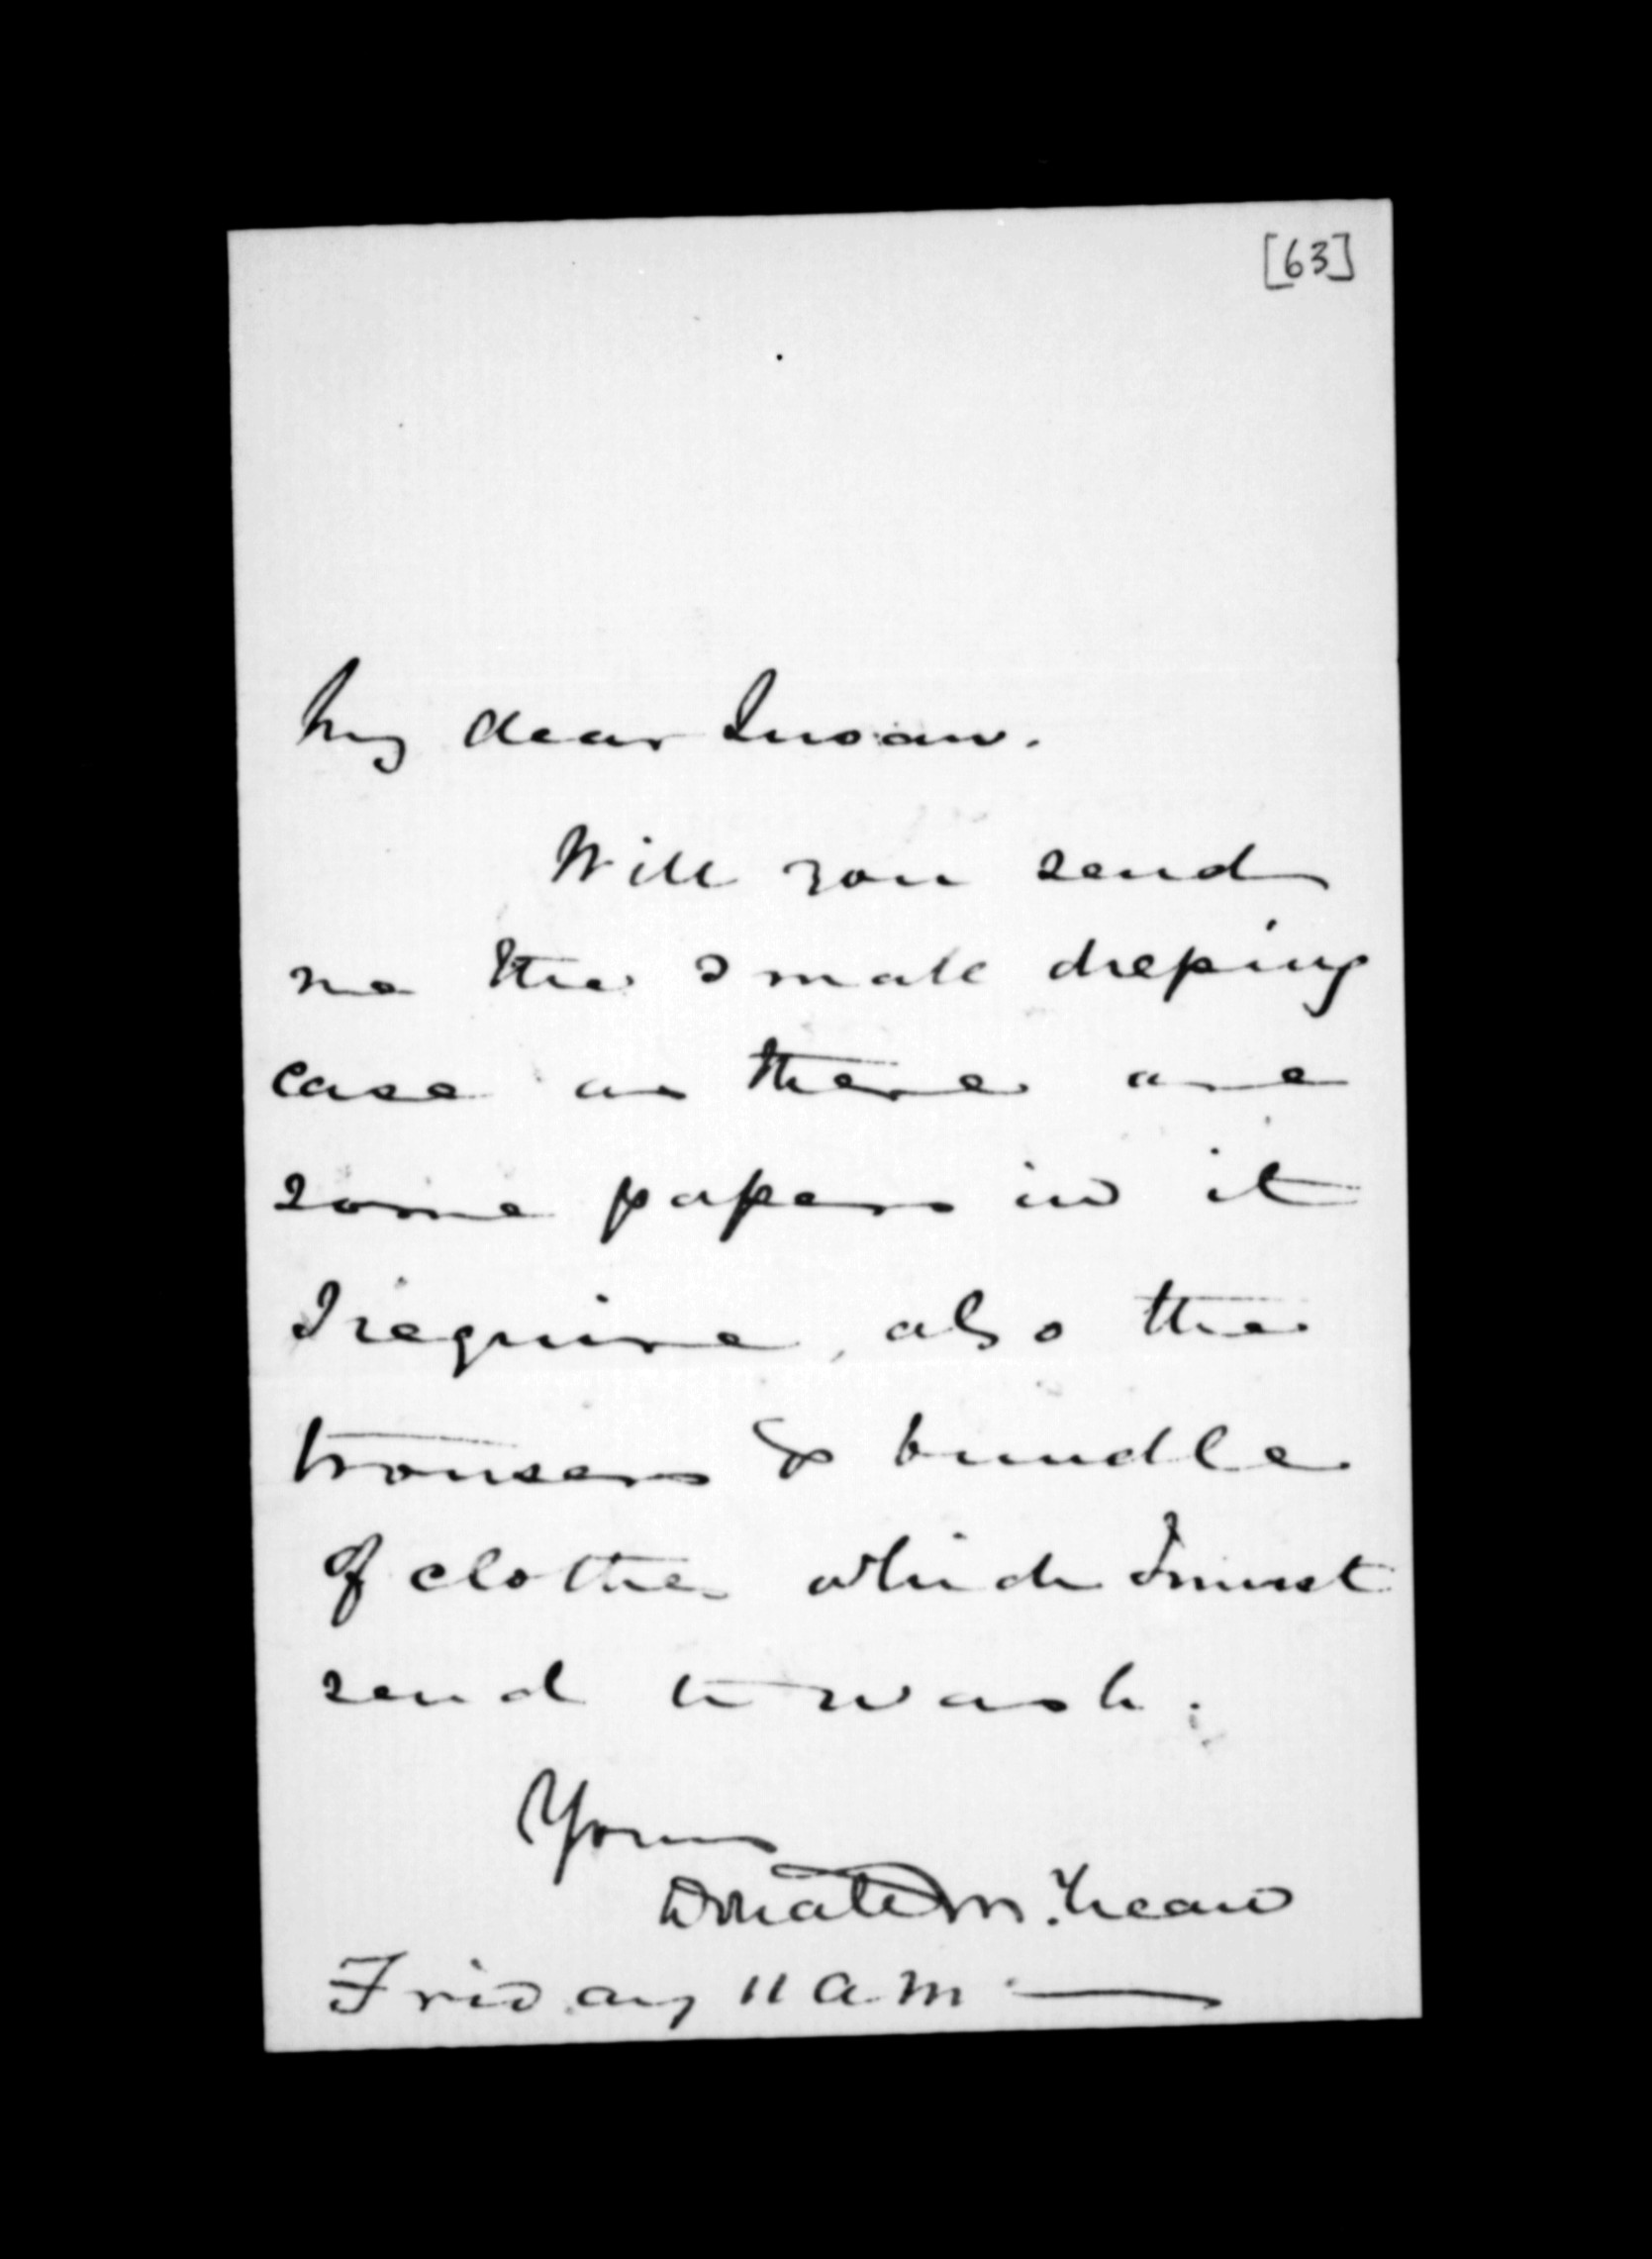 [63]
My dear Susan.
Will you send
me the small dressing
case as there are
some papers in it
I require, also the
trousers & bundle
of clothes which I must
send to wash.
Yours
Donald McLean
Friday 11 a.m.